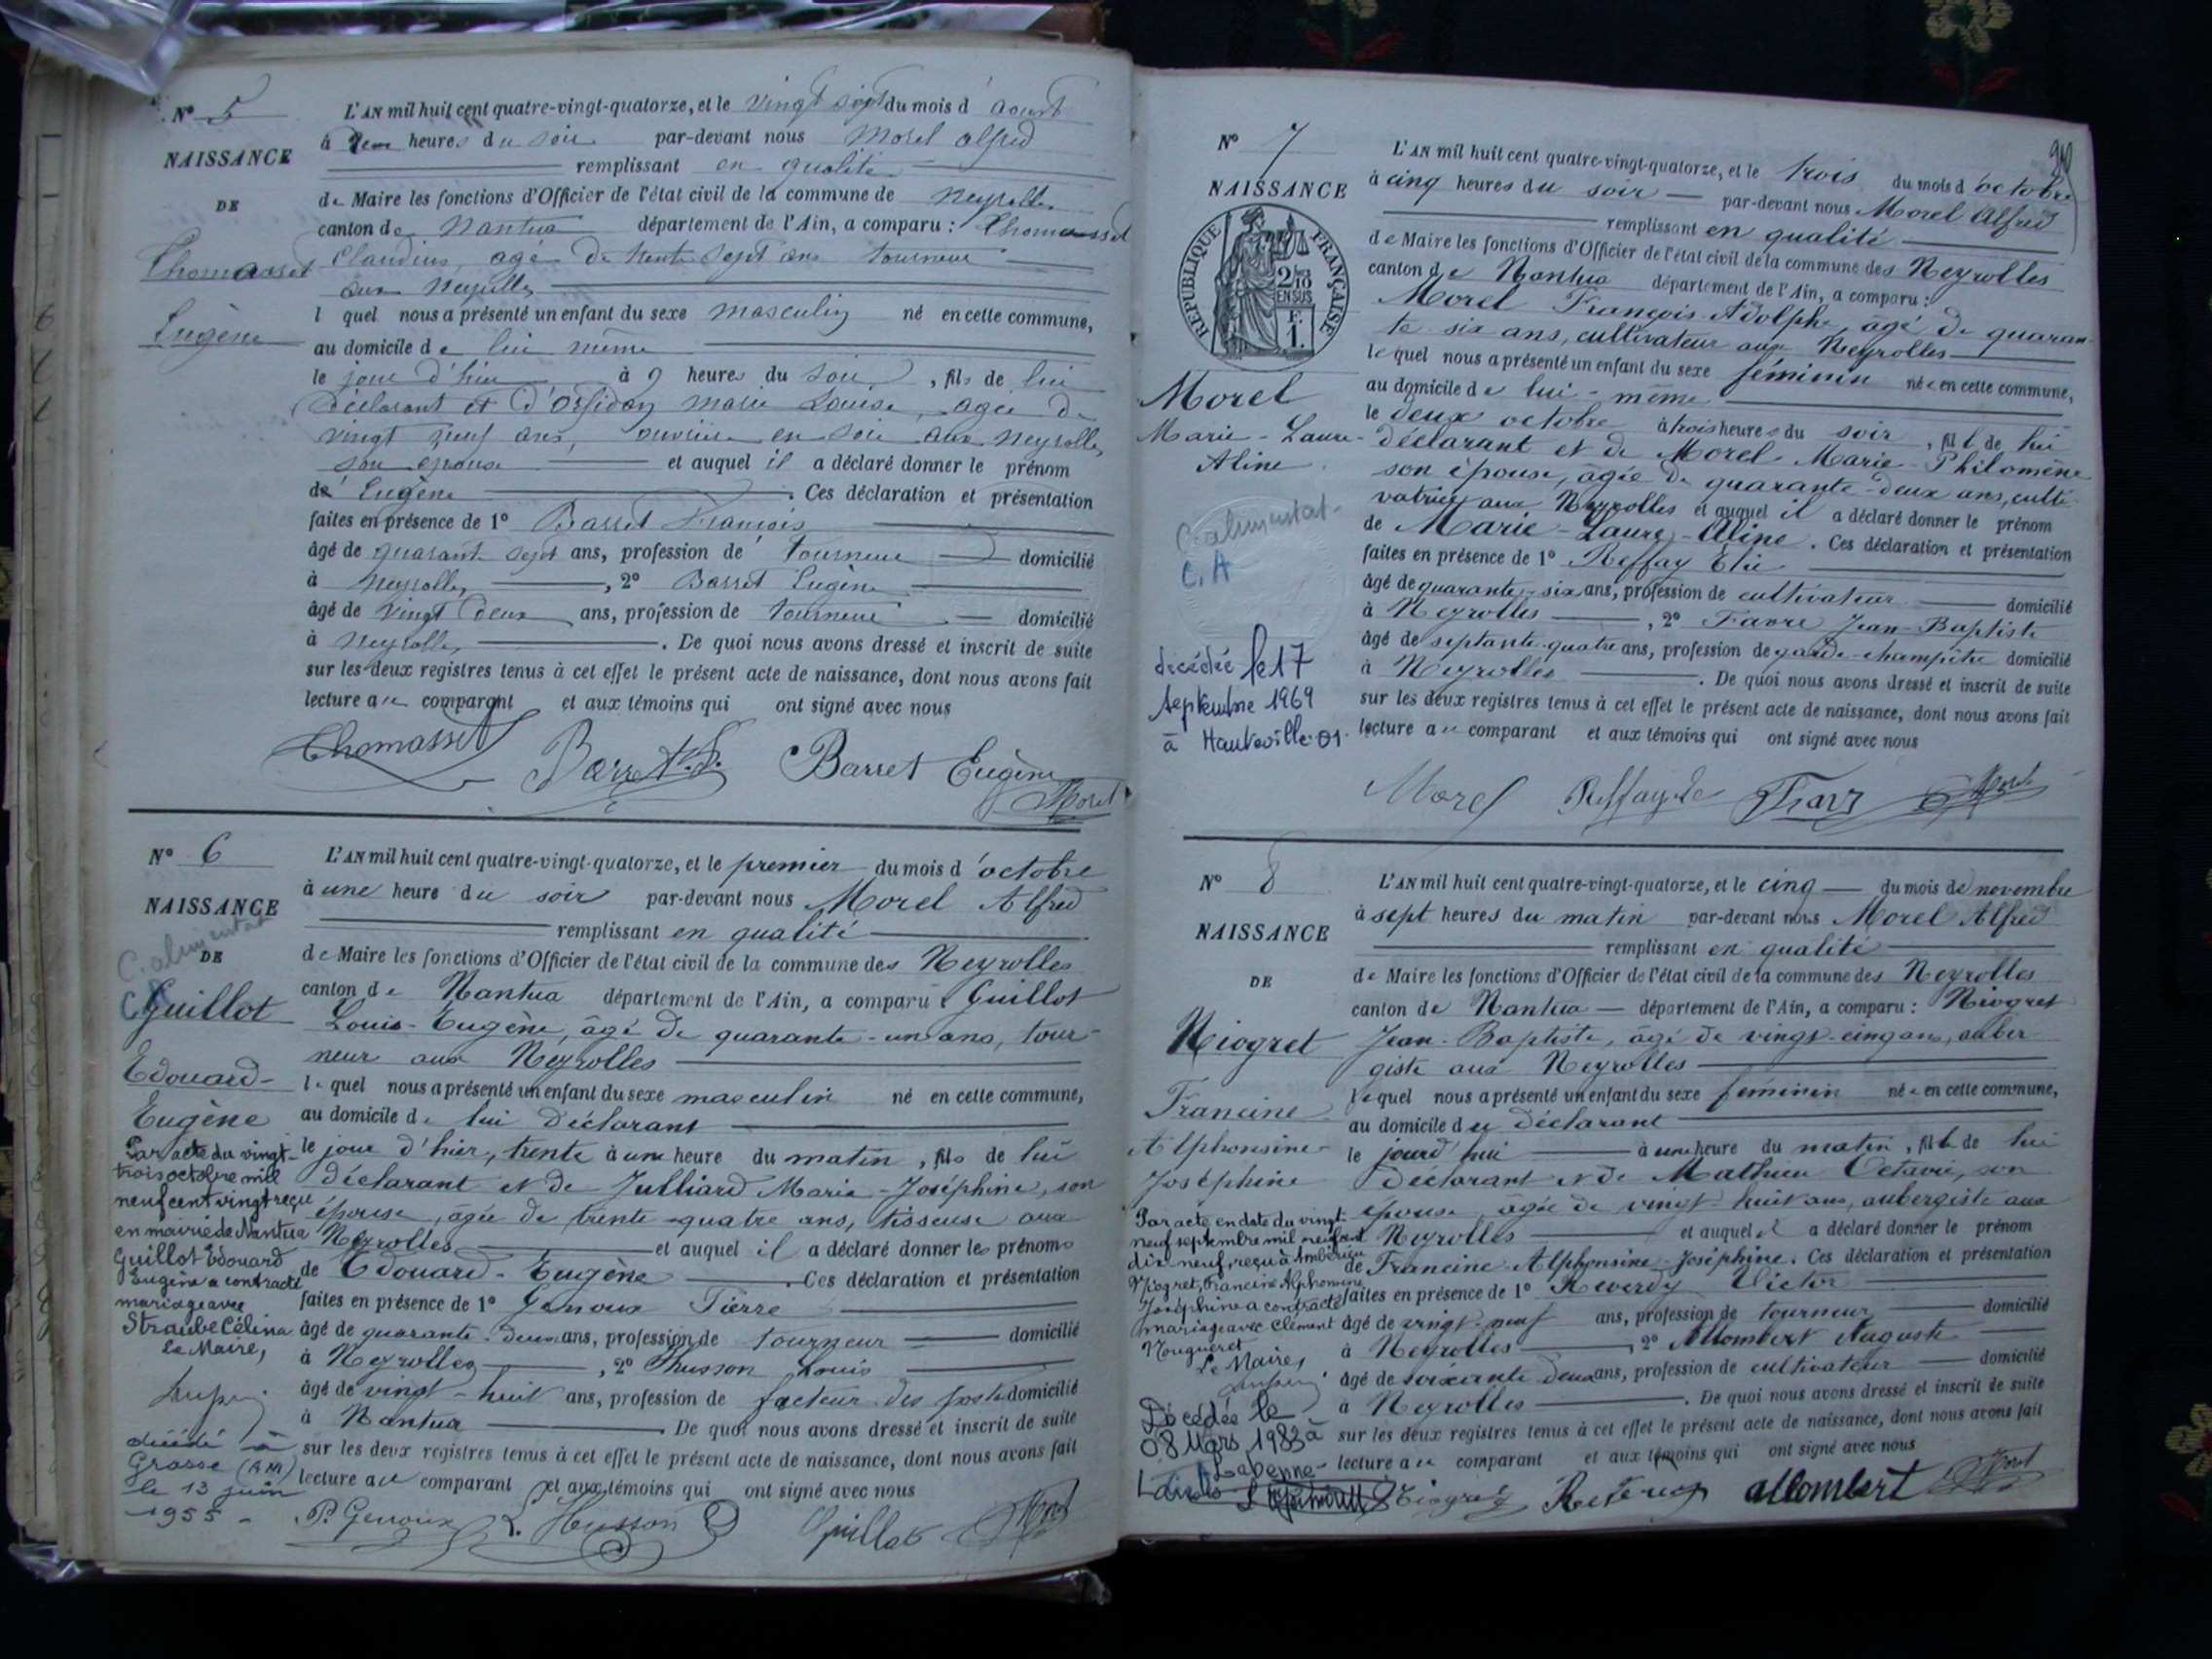 N° 5
NAISSANCE
DE
Thomasset
Eugène
L'AN mil huit cent quatre-vingt-quatorze, et le vingt sept du mois d'aout
à heures du soir par-devant nous Morel alfred
remplissant en qualité
de Maire les fonctions d'Officier de l'état civil de la commune de Neyrolles
canton de Nantua département de l'Ain, a comparu : Thomasset
Claudius, agé de trente sept ans tourneur
aux Neyrolles
lequel nous a présenté un enfant du sexe masculin né en cette commune,
au domicile de lui même
le jour d'hier à 9 heures du soir, fils de lui
déclarant et d' Marie Louise, agée de
vingt neuf ans, ouvrière en soie aux Neyrolles
son épouse et auquel il a déclaré donner le prénom
de Eugène. Ces déclaration et présentation
faites en présence de 1° Barret François
âgé de quarante sept ans, profession de tourneur domicilié
à Neyrolles, 2° Barret Eugène
âgé de vingt deux ans, profession de tourneur domicilié
à Neyrolles. De quoi nous avons dressé et inscrit de suite
sur les deux registres tenus à cet effet le présent acte de naissance, dont nous avons fait
lecture au comparant et aux témoins qui ont signé avec nous
Thomasset Barret Barret Eugène Morel
N° 6
NAISSANCE
DE
C. alimentat
Guillot
Edouard-
Eugène
Par acte du vingt-
trois octobre mil
neuf cent vingt reçu
en mairie de Nantua
Guillot Edouard
Eugène a contracté
mariage avec
Straube Célina
Le Maire,
décédé à
Grasse (AM)
le 13 juin
1955 -
L'AN mil huit cent quatre-vingt-quatorze, et le premier du mois d'octobre
à une heure du soir par-devant nous Morel Alfred
remplissant en qualité
de Maire les fonctions d'Officier de l'état civil de la commune des Neyrolles
canton de Nantua département de l'Ain, a comparu : Guillot
Louis-Eugène, âgé de quarante-un ans, tour-
neur aux Neyrolles
lequel nous a présenté un enfant du sexe masculin né en cette commune,
au domicile de lui déclarant
le jour d'hier, trente à une heure du matin, fils de lui
déclarant et de Julliard Marie-Joséphine, son
épouse, agée de trente-quatre ans, tisseuse aux
Neyrolles et auquel il a déclaré donner les prénoms
de Edouard-Eugène. Ces déclaration et présentation
faites en présence de 1° Genoux Pierre
âgé de quarante-deux ans, profession de tourneur domicilié
à Neyrolles, 2° Husson Louis
âgé de vingt-huit ans, profession de facteur des postes domicilié
à Nantua. De quoi nous avons dressé et inscrit de suite
sur les deux registres tenus à cet effet le présent acte de naissance, dont nous avons fait
lecture au comparant et aux témoins qui ont signé avec nous
P. Genoux L. Husson Guillot Morel
N° 7
NAISSANCE
RÉPUBLIQUE FRANÇAISE
2/10 EN SUS
F. 1.
Morel
Marie-Laure-
Aline
C. alimentat-
C. A
décédée le 17
Septembre 1969
à Hauteville-01-
L'AN mil huit cent quatre-vingt-quatorze, et le trois du mois d'octobre
à cinq heures du soir par-devant nous Morel Alfred
remplissant en qualité
de Maire les fonctions d'Officier de l'état civil de la commune des Neyrolles
canton de Nantua département de l'Ain, a comparu :
Morel François-Adolphe, âgé de quaran-
te-six ans, cultivateur aux Neyrolles
lequel nous a présenté un enfant du sexe féminin née en cette commune,
au domicile de lui-même
le deux octobre à trois heures du soir, fille de lui
déclarant et de Morel Marie-Philomène
son épouse, âgée de quarante-deux ans, culti-
vatrice aux Neyrolles et auquel il a déclaré donner le prénom
de Marie-Laure-Aline. Ces déclaration et présentation
faites en présence de 1° Reffay Elie
âgé de quarante-six ans, profession de cultivateur domicilié
à Neyrolles, 2° Favre Jean-Baptiste
âgé de septante-quatre ans, profession de garde-champêtre domicilié
à Neyrolles. De quoi nous avons dressé et inscrit de suite
sur les deux registres tenus à cet effet le présent acte de naissance, dont nous avons fait
lecture au comparant et aux témoins qui ont signé avec nous
Morel Reffay Elie Favre Morel
N° 8
NAISSANCE
DE
Niogret
Francine
Alphonsine-
Joséphine
Par acte en date du vingt-
neuf septembre mil neuf cent
dix neuf, reçu à Ambérieu
Niogret, Francine Alphonsine
Joséphine a contracté
mariage avec Clément
Nougueret
Le Maire,
Décédée le
08 Mars 1983 à
Labenne-
Landes
L'AN mil huit cent quatre-vingt-quatorze, et le cinq du mois de novembre
à sept heures du matin par-devant nous Morel Alfred
remplissant en qualité
de Maire les fonctions d'Officier de l'état civil de la commune des Neyrolles
canton de Nantua département de l'Ain, a comparu : Niogret
Jean-Baptiste, âgé de vingt-cinq ans, auber-
giste aux Neyrolles
lequel nous a présenté un enfant du sexe féminin née en cette commune,
au domicile du déclarant
le jourd'hui à une heure du matin, fille de lui
déclarant et de Mathieu Octavie, son
épouse, âgée de vingt-huit ans, aubergiste aux
Neyrolles et auquel il a déclaré donner le prénom
de Francine-Alphonsine-Joséphine. Ces déclaration et présentation
faites en présence de 1° Reverdy Victor
âgé de vingt-neuf ans, profession de tourneur domicilié
à Neyrolles, 2° Allombert Auguste
âgé de soixante deux ans, profession de cultivateur domicilié
à Neyrolles. De quoi nous avons dressé et inscrit de suite
sur les deux registres tenus à cet effet le présent acte de naissance, dont nous avons fait
lecture au comparant et aux témoins qui ont signé avec nous
Niogret Reverdy allombert Morel